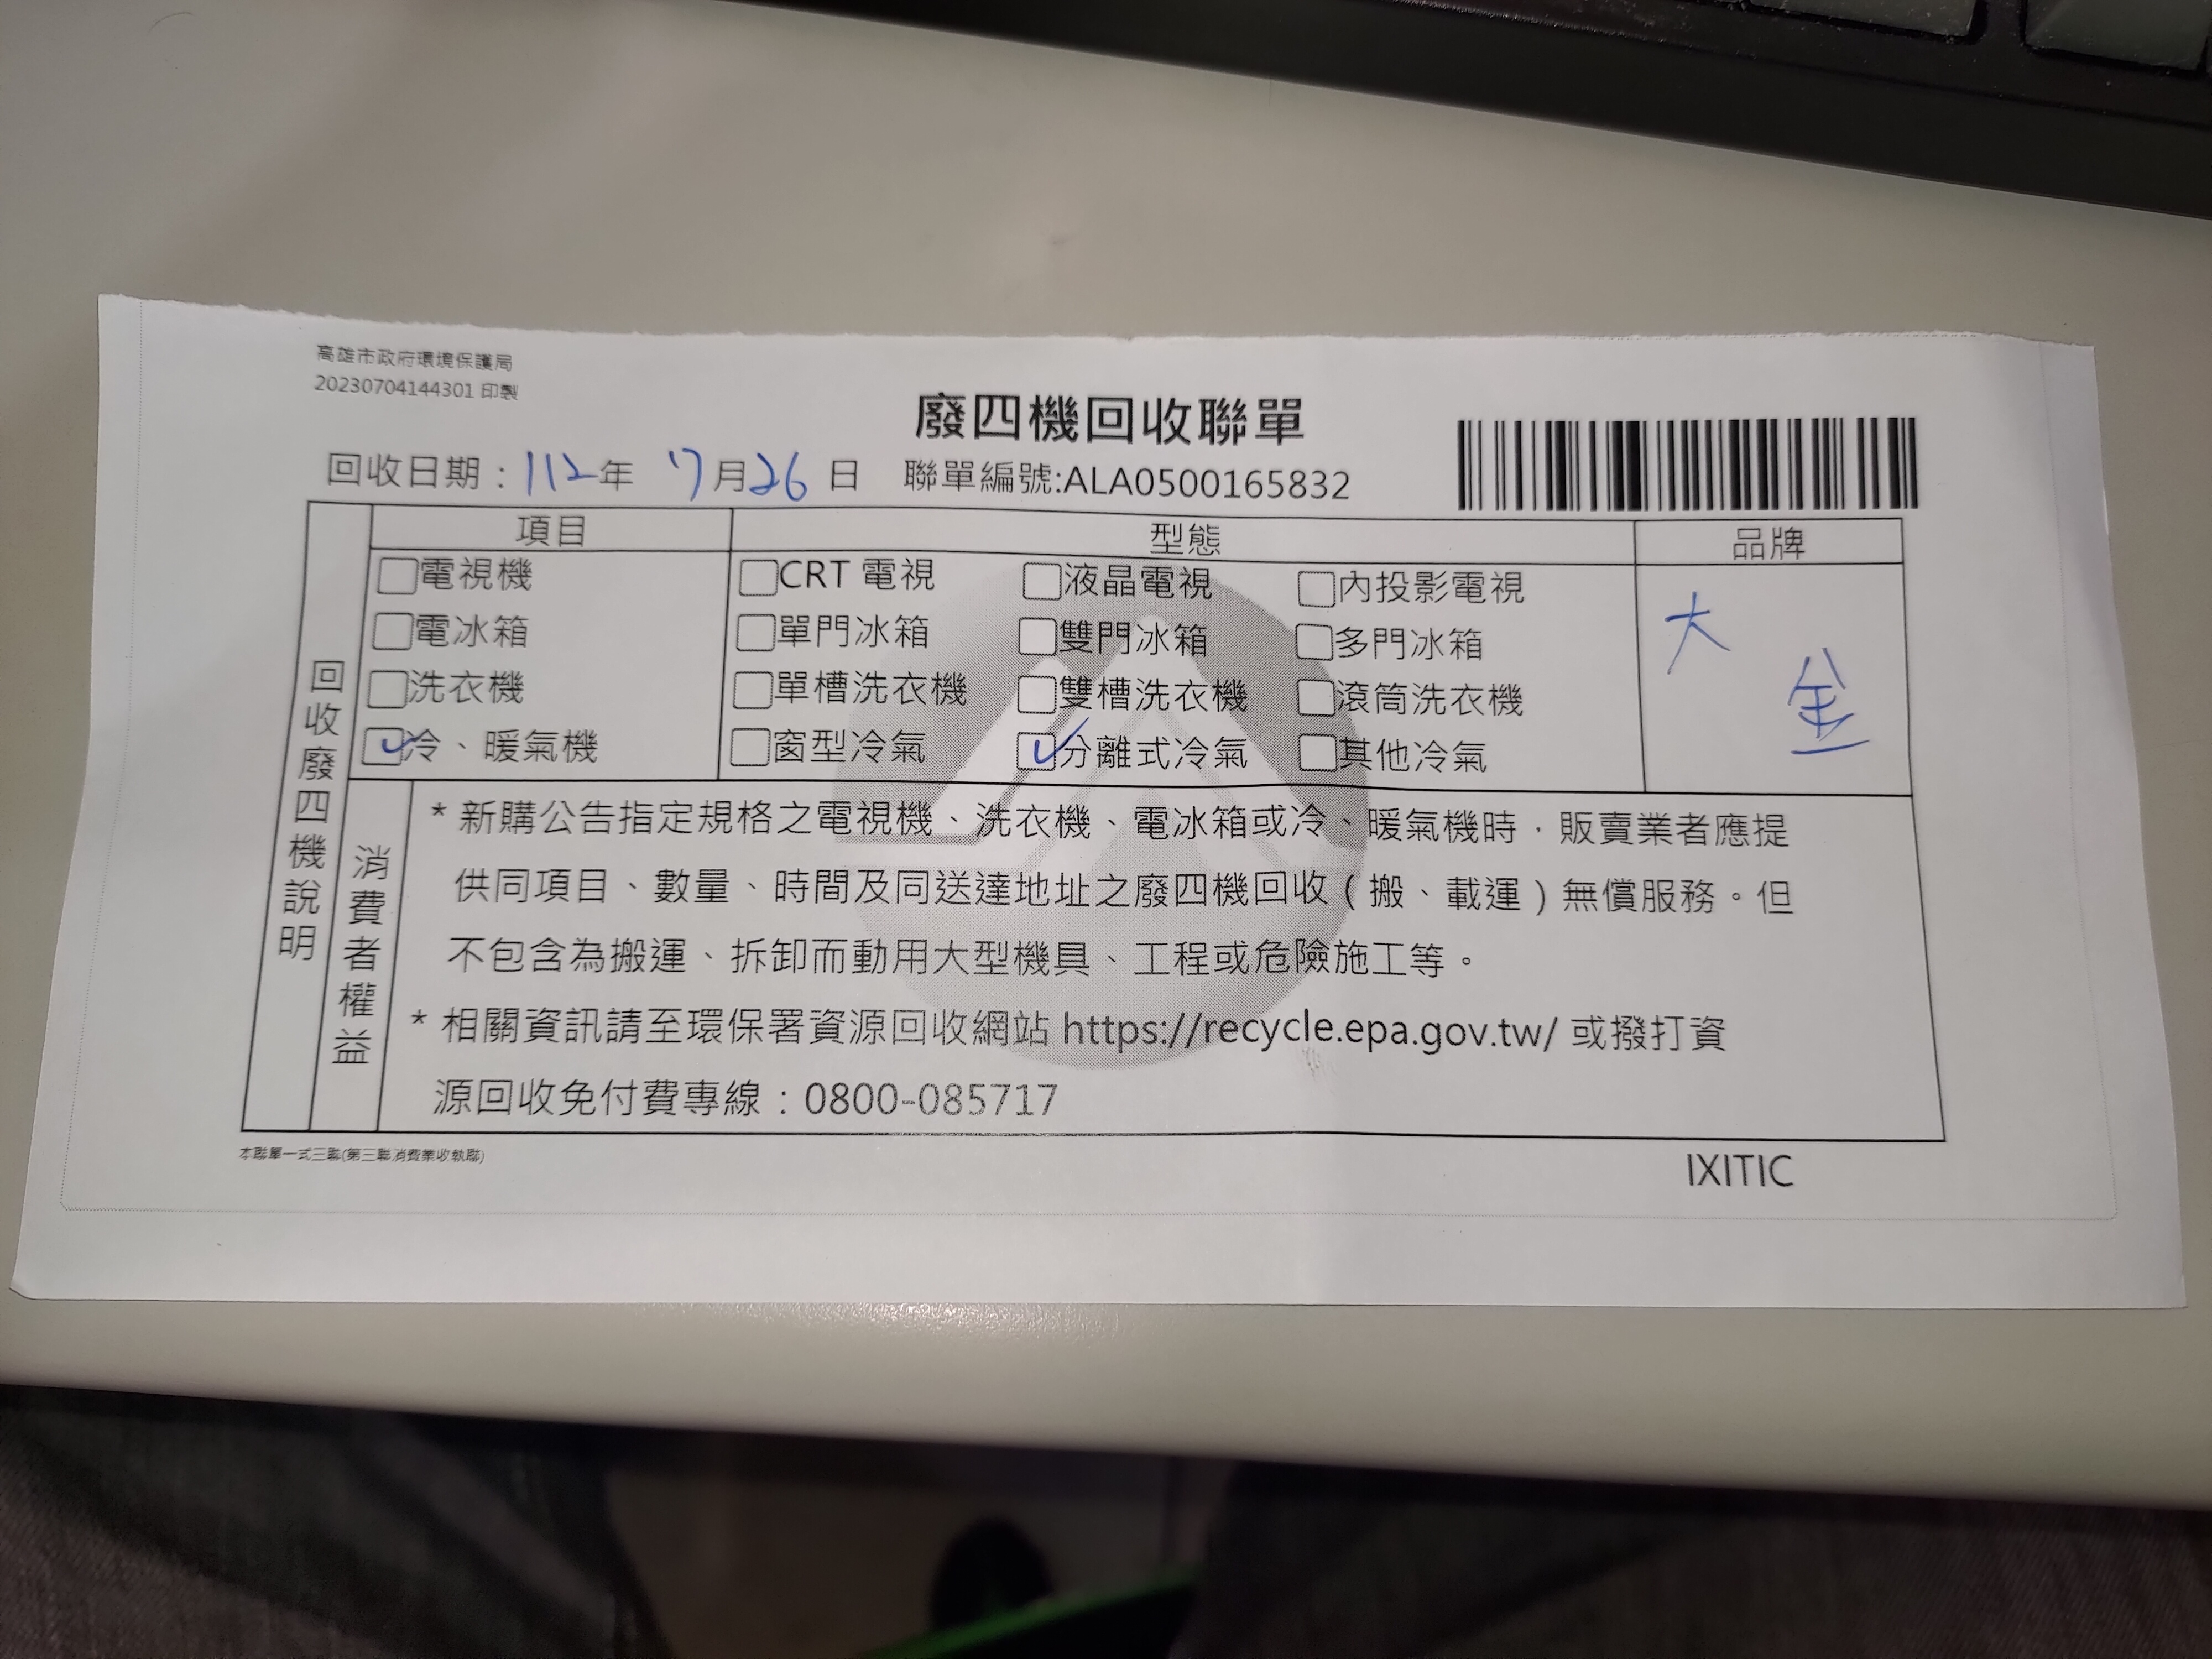 高雄市政府環境保護局
20230704144301 印製
廢四機回收聯單
回收日期：112年 7月26日 聯單編號:ALA0500165832
項目 型態 品牌
電視機 CRT 電視 液晶電視 內投影電視
電冰箱 單門冰箱 雙門冰箱 多門冰箱
洗衣機 單槽洗衣機 雙槽洗衣機 滾筒洗衣機
冷、暖氣機 窗型冷氣 分離式冷氣 其他冷氣
大金
回收廢四機說明
消費者權益
* 新購公告指定規格之電視機、洗衣機、電冰箱或冷、暖氣機時，販賣業者應提
供同項目、數量、時間及同送達地址之廢四機回收（搬、載運）無償服務。但
不包含為搬運、拆卸而動用大型機具、工程或危險施工等。
* 相關資訊請至環保署資源回收網站 https://recycle.epa.gov.tw/ 或撥打資
源回收免付費專線：0800-085717
本聯單一式三聯(第三聯消費業收執聯)
IXITIC